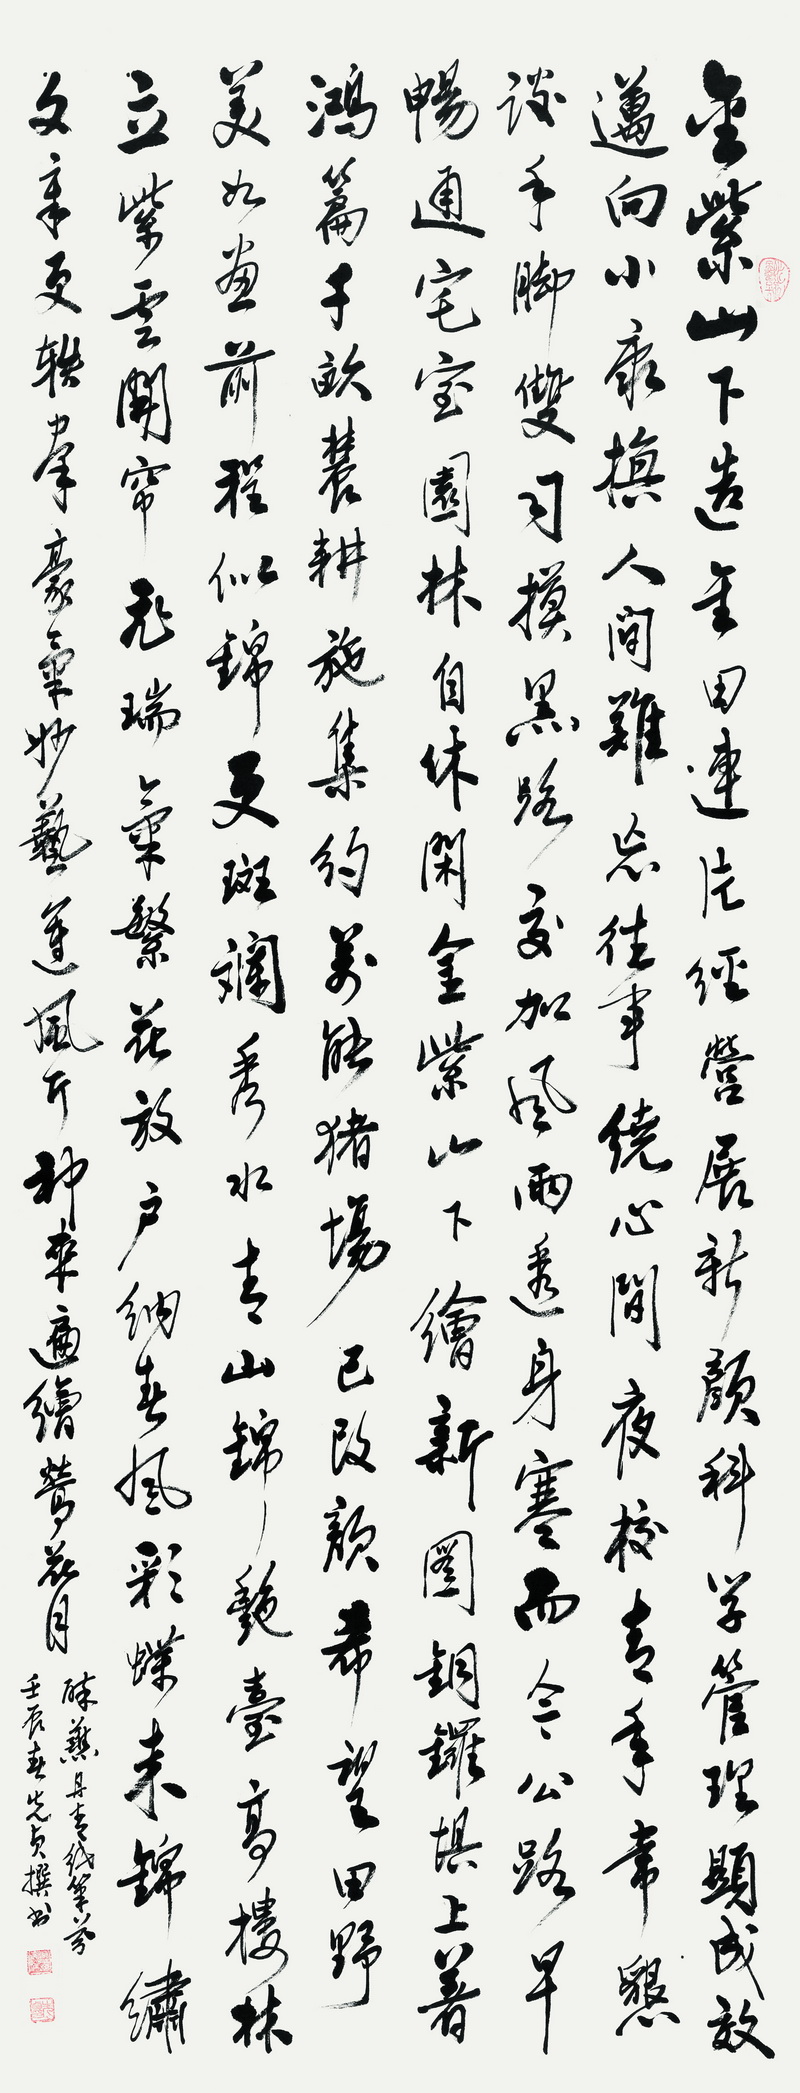 金紫山下造金田連片經營展新顏科学管理顯成效
邁向小康換人間難忘往事繞心間夜校青年常懇
談手脚雙习摸黑路交加風雨透身寒而今公路早
暢通宅室園林自休閑金紫山下繪新圖銅鑼垻上著
鴻篇千畝農耕施集約萬能猪場已改顏希望田野
美如畫前程似錦更斑斕秀水青山錦艷臺高樓林
立紫雲開帘飛瑞氣繁花放户納春風彩蝶来錦繡
文章更軼羣豪氣妙藝運風斤神来遍繪鶯花月
醉蘸丹青筆
壬辰春先貞撰書